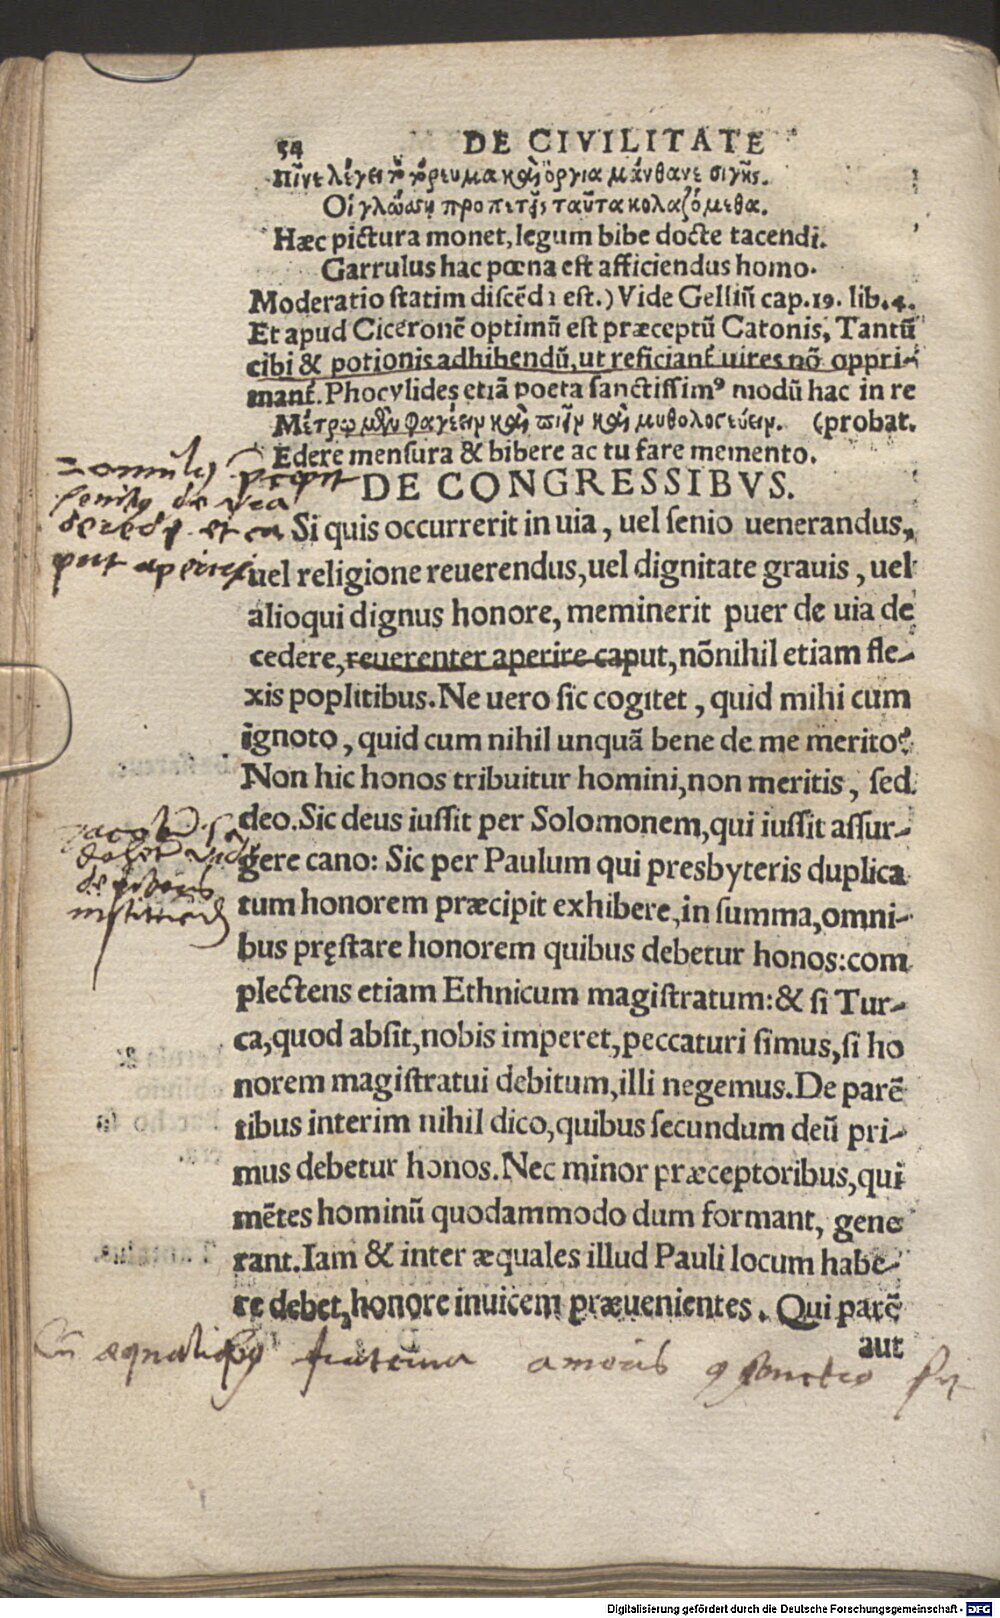 54 DE CIVILITATE
Πῖνε λέγει τὸ τόρευμα καὶ ὄργια μάνθανε σιγῆς.
Οἱ γλώσσῃ προπετῆς ταῦτα κολαζόμεθα.
Hæc pictura monet, legum bibe docte tacendi.
Garrulus hac pœna est afficiendus homo.
Moderatio statim discẽdi est.) Vide Gelliũ cap.19. lib.4.
Et apud Ciceronẽ optimũ est præceptũ Catonis, Tantũ
cibi & potionis adhibendũ, ut reficiant̃ uires nõ oppri-
mant̃. Phocylides etiã poeta sanctissimꝰ modũ hac in re
Μέτρῳ μὲν φαγέειν καὶ πιεῖν καὶ μυθολογεύειν. (probat.
Edere mensura & bibere ac tu fare memento.
DE CONGRESSIBVS.
Si quis occurrerit in uia, uel senio uenerandus,
uel religione reuerendus, uel dignitate grauis, uel
alioqui dignus honore, meminerit puer de uia de
cedere, reuerenter aperire caput, nõnihil etiam fle-
xis poplitibus. Ne uero sic cogitet, quid mihi cum
ignoto, quid cum nihil unquã bene de me merito?
Non hic honos tribuitur homini, non meritis, sed
deo. Sic deus iussit per Solomonem, qui iussit assur-
gere cano: Sic per Paulum qui presbyteris duplica
tum honorem præcipit exhibere, in summa, omni-
bus pręstare honorem quibus debetur honos: com
plectens etiam Ethnicum magistratum: & si Tur-
ca, quod absit, nobis imperet, peccaturi simus, si ho
norem magistratui debitum, illi negemus. De parẽ
tibus interim nihil dico, quibus secundum deũ pri-
mus debetur honos. Nec minor præceptoribus, qui
mẽtes hominũ quodammodo dum formant, gene
rant. Iam & inter æquales illud Pauli locum habe-
re debet, honore inuicem præuenientes. Qui parẽ
aut
de via
et ca
put aperire
Jacob Sa
de
æqualibus fraterna amoris
Digitalisierung gefördert durch die Deutsche Forschungsgemeinschaft - DFG